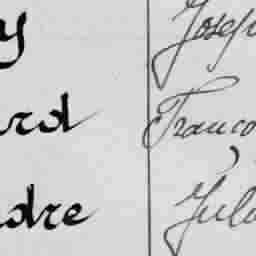 y Josep
ard Franco
ndre Jule